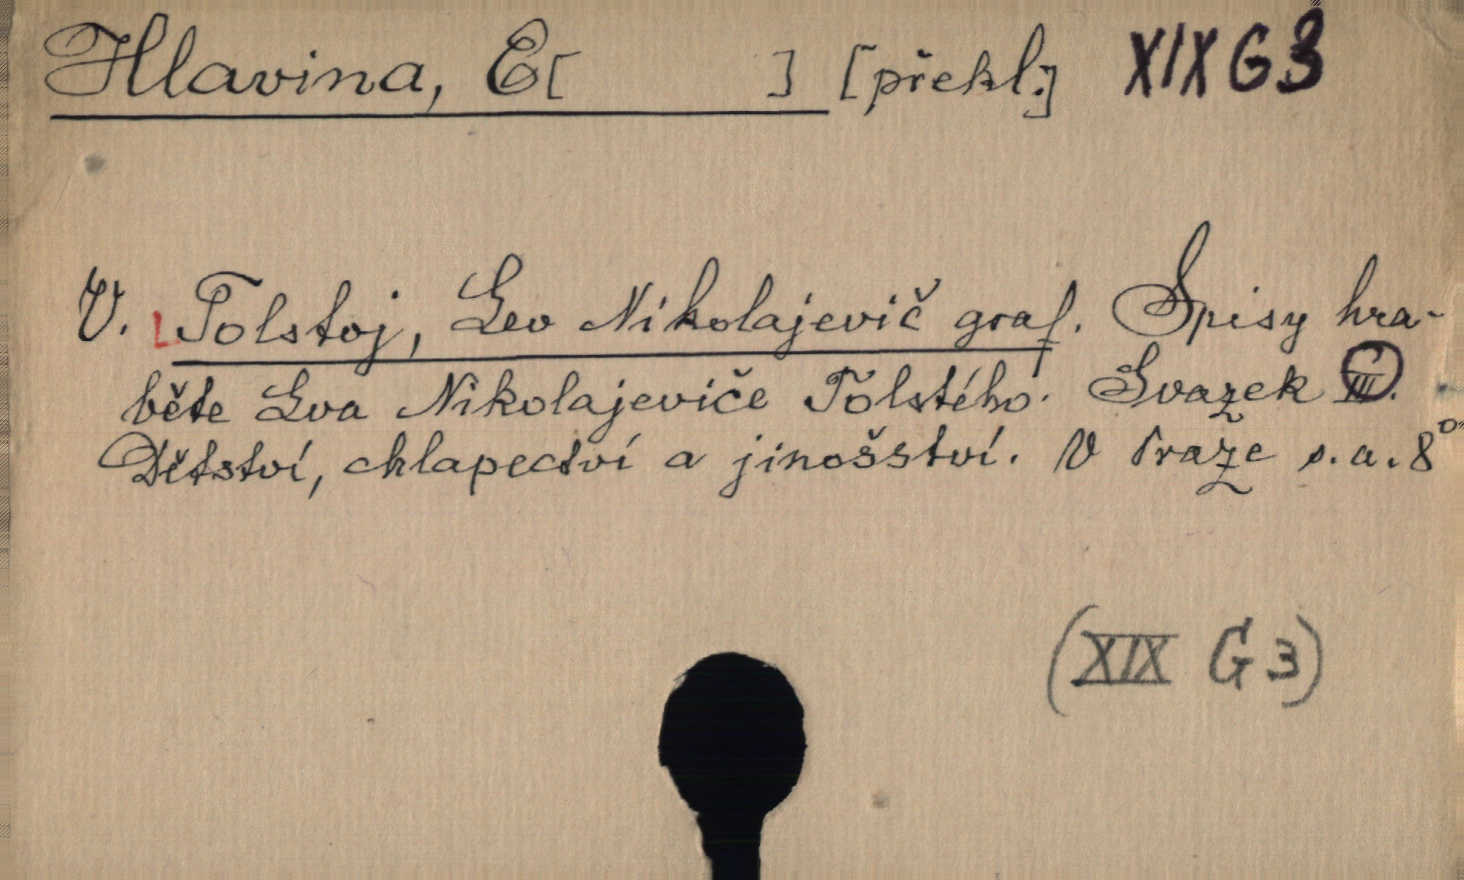 Hlavina, E[ ] [překl.] XIX G 3
V. Tolstoj, Lev Nikolajevič graf. Spisy hra-
běte Lva Nikolajeviče Tolstého. Svazek III.
Dětství, chlapectví a jinošství. V Praze s.a. 8°
(XIX G 3)